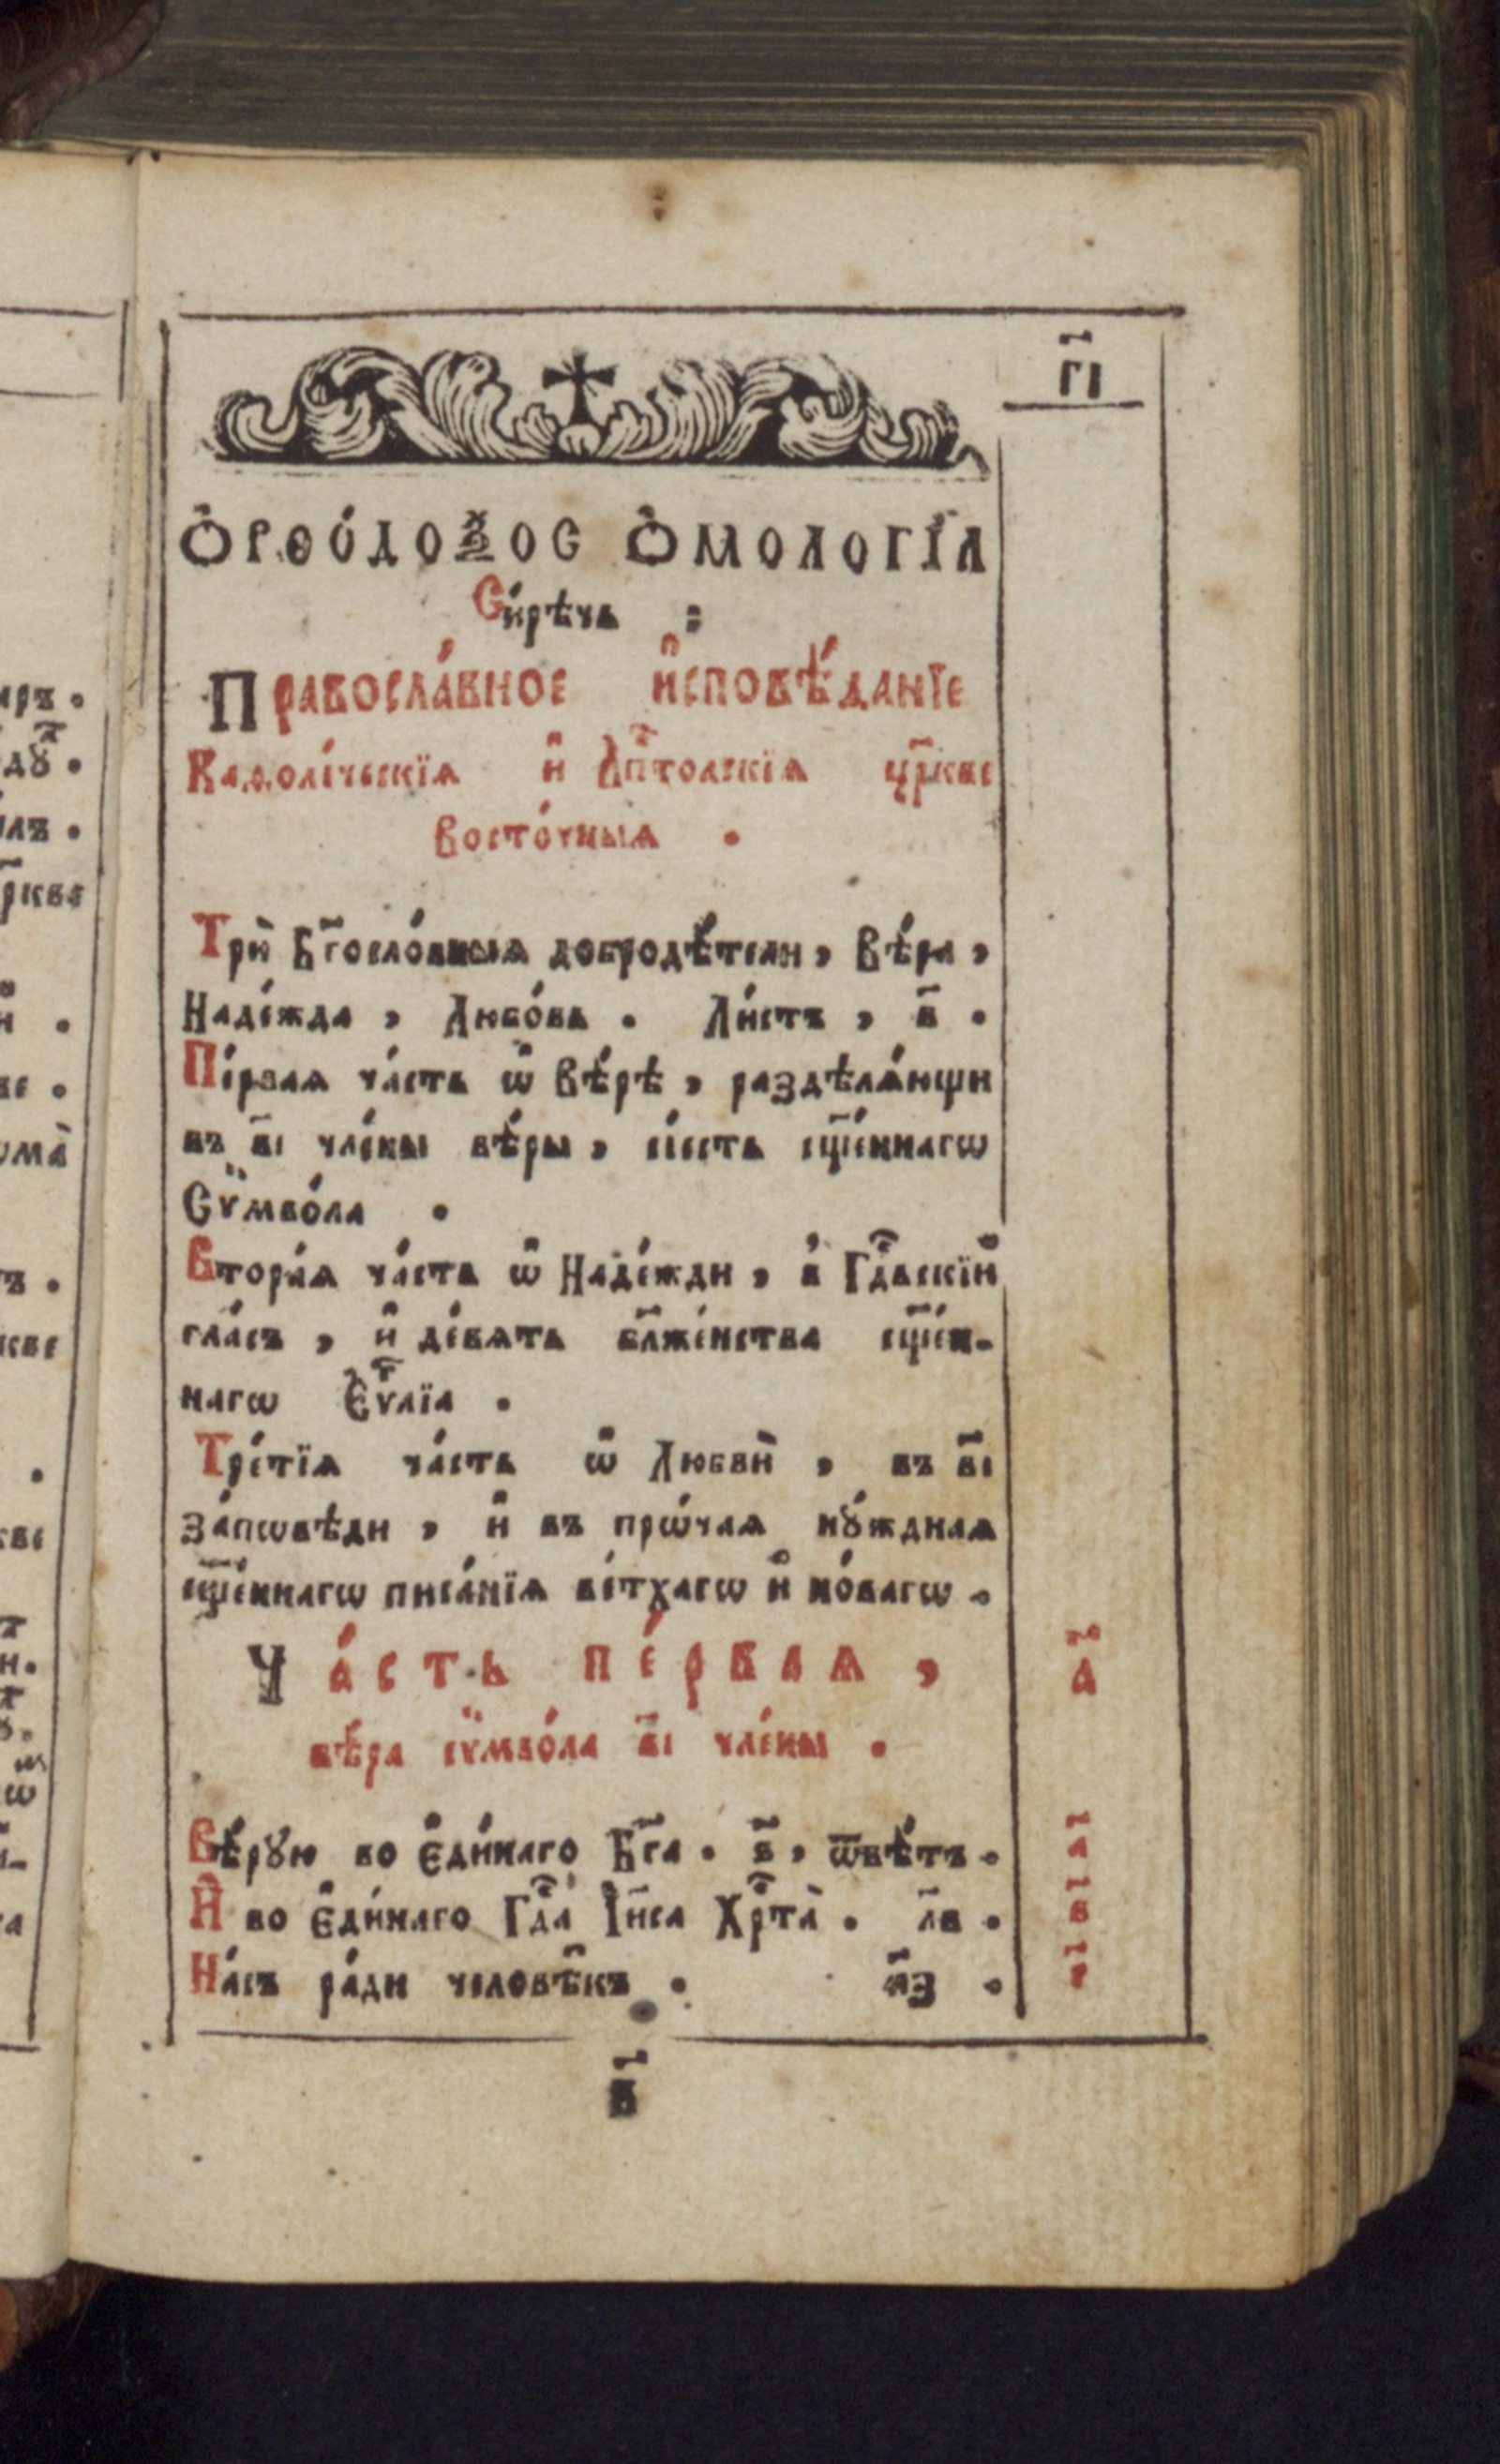 г҃і
Ѻ҆рѳо́доѯос Ѻ҆мологі́а
Си́рѣчь :
Правосла́вное и҆сповѣ́данїе
Каѳоли́ческїѧ и҆ А҆пⷭ҇толскїѧ цр҃кве
Восто́чныѧ .
Трѝ Бг҃осло́вныѧ добродѣ́тели , Вѣ́ра ,
Наде́жда , Любо́вь . Ли́стъ , в҃ .
Пе́рваѧ ча́сть ѡ҆ Вѣ́рѣ , раздѣлѧ́ющи
въ в҃і чле́ны вѣ́ры , сі́есть сщ҃е́ннагѡ
Сѷмво́ла .
Втора́ѧ ча́сть ѡ҆ Наде́жди , в̾ Гдⷭ҇вскїй
гла́съ , и҆ де́вѧть бл҃же́нства сщ҃е́н-
нагѡ Є҆ѵⷢ҇лїа .
Тре́тїѧ ча́сть ѡ҆ Любвѝ , въ в҃і
за́пѡвѣди , и҆ въ прѡ́чаѧ нꙋ́жднаѧ
сщ҃е́ннагѡ писа́нїѧ ве́тхагѡ и҆ но́вагѡ .
Ча́сть пе́рваѧ , а҃
вѣ́ра сѷмво́ла в҃і чле́ны .
Вѣ́рꙋю во є҆ди́наго Бг҃а . в҃ , ѿвѣ́тъ . а҃
И҆ во є҆ди́наго Гдⷭ҇а І҆и҃са Хрⷭ҇та̀ . л҃в . в҃
На́съ ра́ди человѣ̑къ . л҃з . г҃
в҃